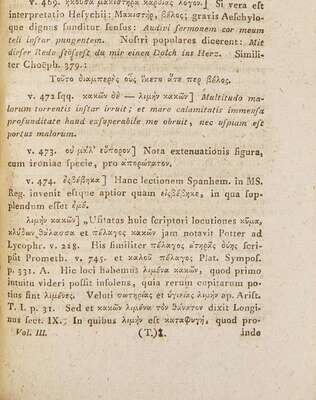 v. 469. ἤκουσα μακιστῆρα καρδίας λόγον.] Si vera est
interpretatio Hesychii: Μακιστήρ, βέλος; gravis Aeschylo-
que dignus funditur sensus: Audivi sermonem cor meum
teli instar pungentem. Nostri populares dicerent: Mit
dieser Rede stössest du mir einen Dolch ins Herz. Simili-
ter Choëph. 379.:
Τοῦτο διαμπερὲς οὖς ἵκετο ἅτε περ βέλος.
v. 471 sqq. κακῶν δὲ — λιμὴν κακῶν] Multitudo ma-
lorum torrentis instar irruit; et mare calamitatis immensa
profunditate haud exsuperabile me obruit, nec uspiam est
portus malorum.
v. 473. οὐ μάλ' εὔπορον] Nota extenuationis figura,
cum ironiae specie, pro ἀπορώτατον.
v. 474. ἐσβέβηκα] Hanc lectionem Spanhem. in MS.
Reg. invenit esique aptior quam εἰσβέβηκε, in qua sup-
plendum esset ἐμέ.
λιμὴν κακῶν] „Usitatas huic scriptori locutiones κῦμα,
κλύδων, θάλασσα et πέλαγος κακῶν jam notavit Potter ad
Lycophr. v. 228. His similiter πέλαγος ἀτηρᾶς δύης scri-
psit Prometh. v. 745. et καλοῦ πέλαγος Plat. Sympos.
p. 331. A. Hic loci habemus λιμένα κακῶν, quod primo
intuitu videri possit insolens, quia rerum cupitarum po-
tius sint λιμένες. Veluti σωτηρίας et ὑγιείας λιμὴν ap. Arist.
T. I. p. 31. Sed et κακῶν λιμένα τὸν θάνατον dixit Longi-
nus sect. IX.; In quibus λιμήν est καταφυγή, quod pro-
Vol. III. (T.) 2. inde